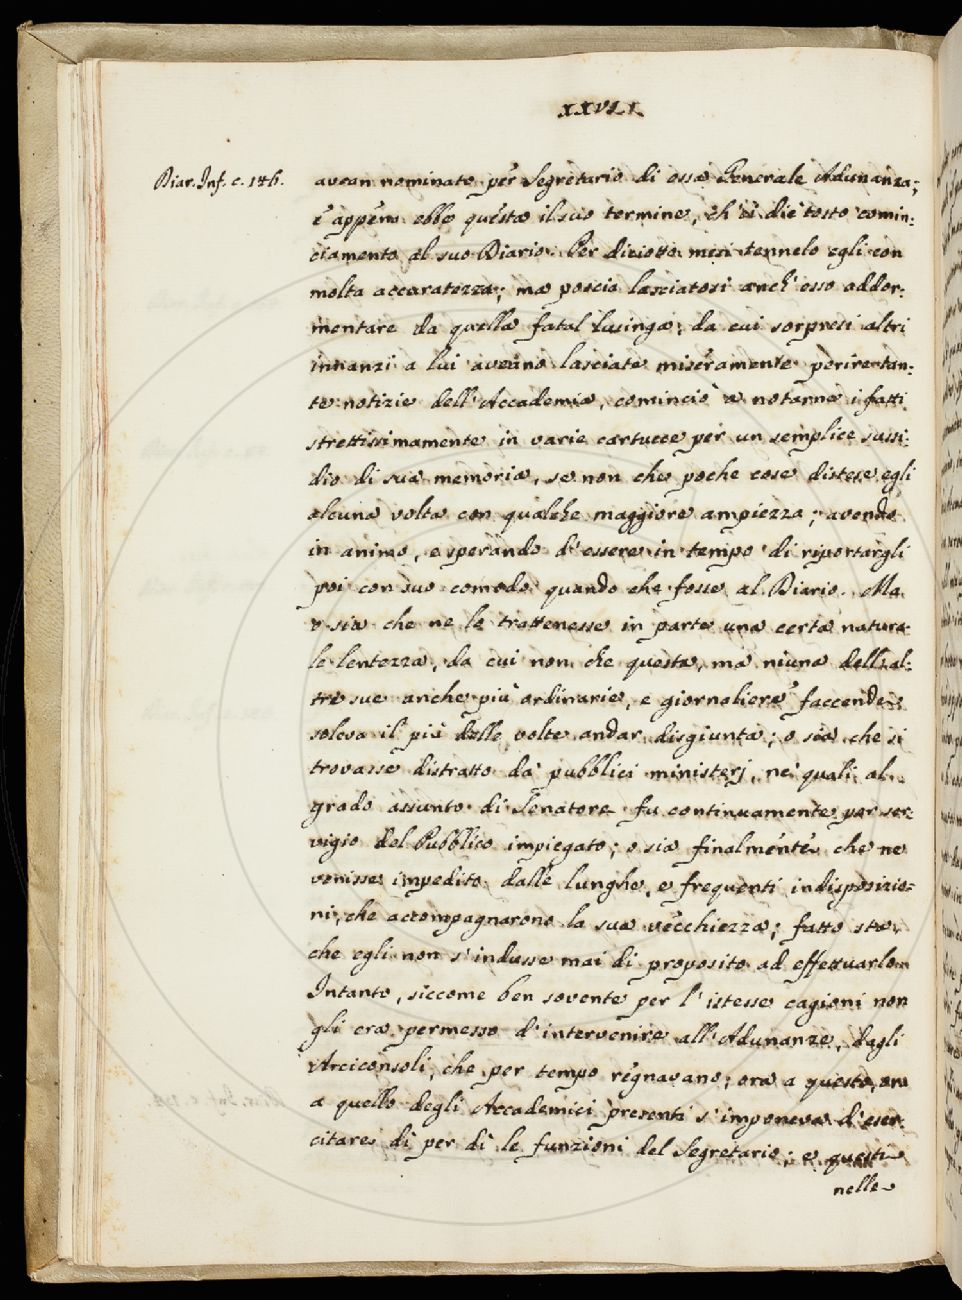 XXVII.
Diar. Inf. c. 146.
avean nominato per Segretario di essa Generale Adunanza;
e appena ebbe questa il suo termine, ch'ei diè tosto comin:
ciamento al suo Diario. Per diciotto mesi tennelo egli con
molta accuratezza; ma poscia lasciatosi anch'esso addor:
mentare da quella fatal lusinga, da cui sorpresi altri
innanzi a lui aveano lasciate miseramente perire tan:
te notizie dell'Accademia, cominciò a notarne i fatti
strettissimamente in varie cartucce per un semplice sussi:
dio di sua memoria, se non che poche cose distese egli
alcuna volta con qualche maggiore ampiezza; avendo
in animo, e sperando d'essere in tempo di riportargli
poi con suo comodo quando che fosse al Diario. Ma
o sia che ne le trattenesse in parte una certa natura
le lentezza, da cui non che questa, ma niuna dell'al:
tre sue anche più ordinarie, e giornaliere faccende
soleva il più delle volte andar disgiunta; o sia che si
trovasse distratto da' pubblici ministerj, ne' quali al
grado assunto di Senatore fu continuamente per ser:
vigio del Pubblico impiegato; o sia finalmente che ne
venisse impedito dalle lunghe, e frequenti indisposizio:
ni, che accompagnarono la sua vecchiezza; fatto sta,
che egli non s'indusse mai di proposito ad effettuarlo.
Intanto, siccome ben sovente per l'istesse cagioni non
gli era permesso d'intervenire all'Adunanze, dagli
Arciconsoli, che per tempo regnavano; ora a questo, ora
a quello degli Accademici presenti s'imponeva d'eser:
citare di per dì le funzioni del Segretario; e questi
nelle